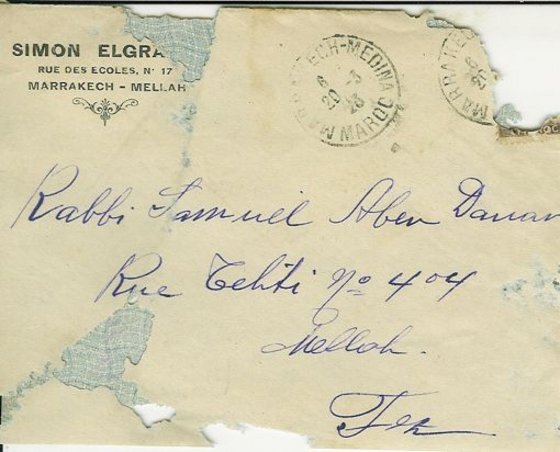 SIMON ELGRA
RUE DES ECOLES, Nº 17
MARRAKECH - MELLAH
MARRAKECH-MEDINA
6
20 -3
23
MAROC
MARRAKEC
6
20
Rabbi Samuel Aben Danan
Rue Tehiti Nº 404
Mellah.
Fez